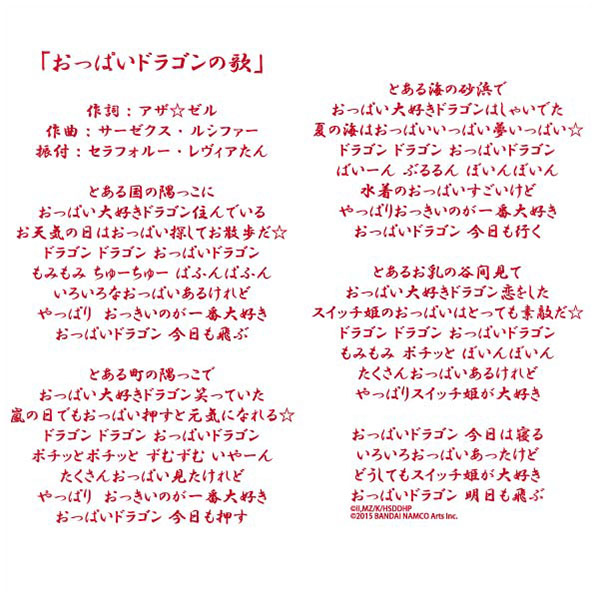 「おっぱいドラゴンの歌」
作詞：アザ☆ゼル
作曲：サーゼクス・ルシファー
振付：セラフォルー・レヴィアたん
とある国の隅っこに
おっぱい大好きドラゴン住んでいる
お天気の日はおっぱい探してお散歩だ☆
ドラゴン ドラゴン おっぱいドラゴン
もみもみ ちゅーちゅー ぱふんぱふん
いろいろなおっぱいあるけれど
やっぱり おっきいのが一番大好き
おっぱいドラゴン 今日も飛ぶ
とある町の隅っこで
おっぱい大好きドラゴン笑っていた
嵐の日でもおっぱい押すと元気になれる☆
ドラゴン ドラゴン おっぱいドラゴン
ポチッとポチッと ずむずむ いやーん
たくさんおっぱい見たけれど
やっぱり おっきいのが一番大好き
おっぱいドラゴン 今日も押す
とある海の砂浜で
おっぱい大好きドラゴンはしゃいでた
夏の海はおっぱいいっぱい夢いっぱい☆
ドラゴン ドラゴン おっぱいドラゴン
ばいーん ぶるるん ぼいんぼいん
水着のおっぱいすごいけど
やっぱりおっきいのが一番大好き
おっぱいドラゴン 今日も行く
とあるお乳の谷間見て
おっぱい大好きドラゴン恋をした
スイッチ姫のおっぱいはとっても素敵だ☆
ドラゴン ドラゴン おっぱいドラゴン
もみもみ ポチッと ぱいんぱいん
たくさんおっぱいあるけれど
やっぱりスイッチ姫が大好き
おっぱいドラゴン 今日は寝る
いろいろおっぱいあったけど
どうしてもスイッチ姫が大好き
おっぱいドラゴン 明日も飛ぶ
©II,MZ/K/HSDDHP
©2015 BANDAI NAMCO Arts Inc.